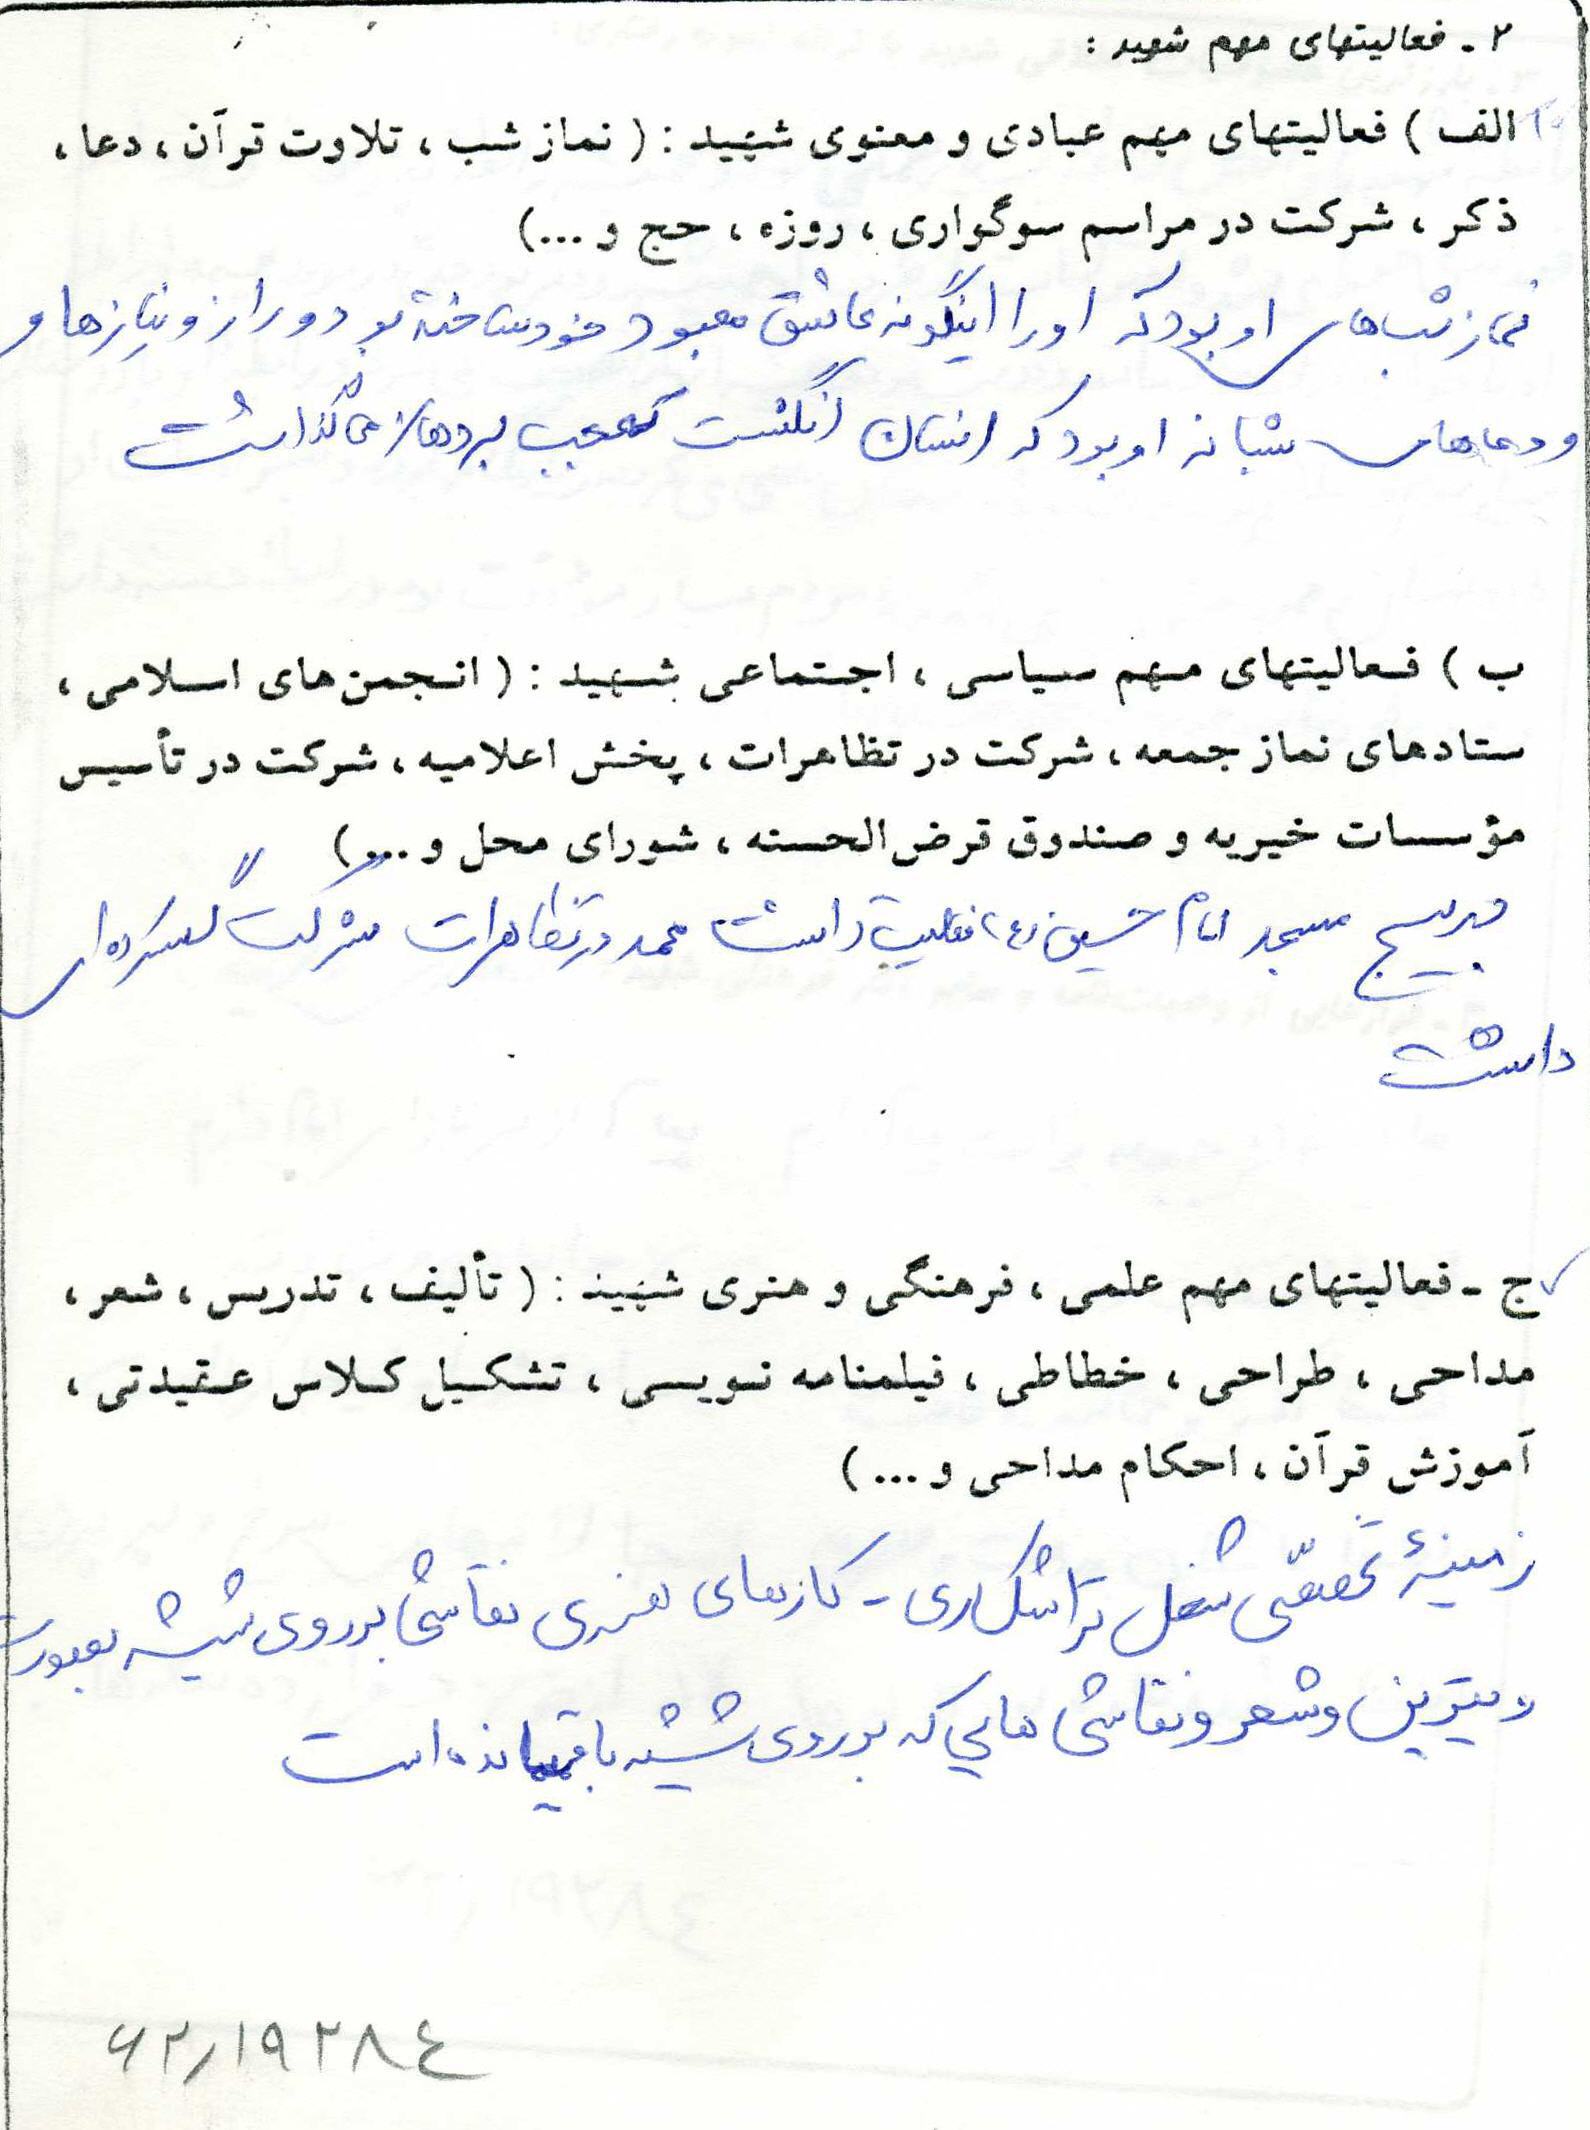 ۲ ـ فعالیتهای مهم شهید :
الف ) فعالیتهای مهم عبادی و معنوی شهید : ( نماز شب ، تلاوت قرآن ، دعا ،
ذکر ، شرکت در مراسم سوگواری ، روزه ، حج و ...)
نماز شبهای او بود که او را اینگونه عاشق معبود خود ساخته بود و راز و نیازها و
و دعاهای شبانه او بود که انسان انگشت تعجب بر دهان می گذاشت
ب ) فعالیتهای مهم سیاسی ، اجتماعی شهید : ( انجمن‌های اسلامی ،
ستادهای نماز جمعه ، شرکت در تظاهرات ، پخش اعلامیه ، شرکت در تأسیس
مؤسسات خیریه و صندوق قرض‌الحسنه ، شورای محل و ...)
در بسیج مسجد امام حسین (ع) فعالیت داشت محمد در تظاهرات شرکت گسترده‌ای
داشت
ج ـ فعالیتهای مهم علمی ، فرهنگی و هنری شهید : ( تألیف ، تدریس ، شعر ،
مداحی ، طراحی ، خطاطی ، فیلمنامه نویسی ، تشکیل کلاس عقیدتی ،
آموزش قرآن ، احکام مداحی و ... )
زمینهٔ تخصصی شغل تراشکاری - کارهای هنری نقاشی بر روی شیشه بصورت
ویترین و شعر و نقاشی هایی که بر روی شیشه باقیمانده است
۶۲٫۱۹۲۸٤